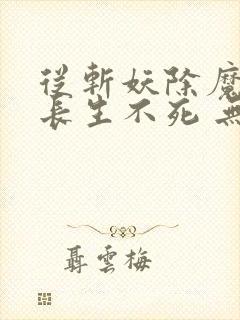 從斬妖除魔
長生不死 無
聶雲梅